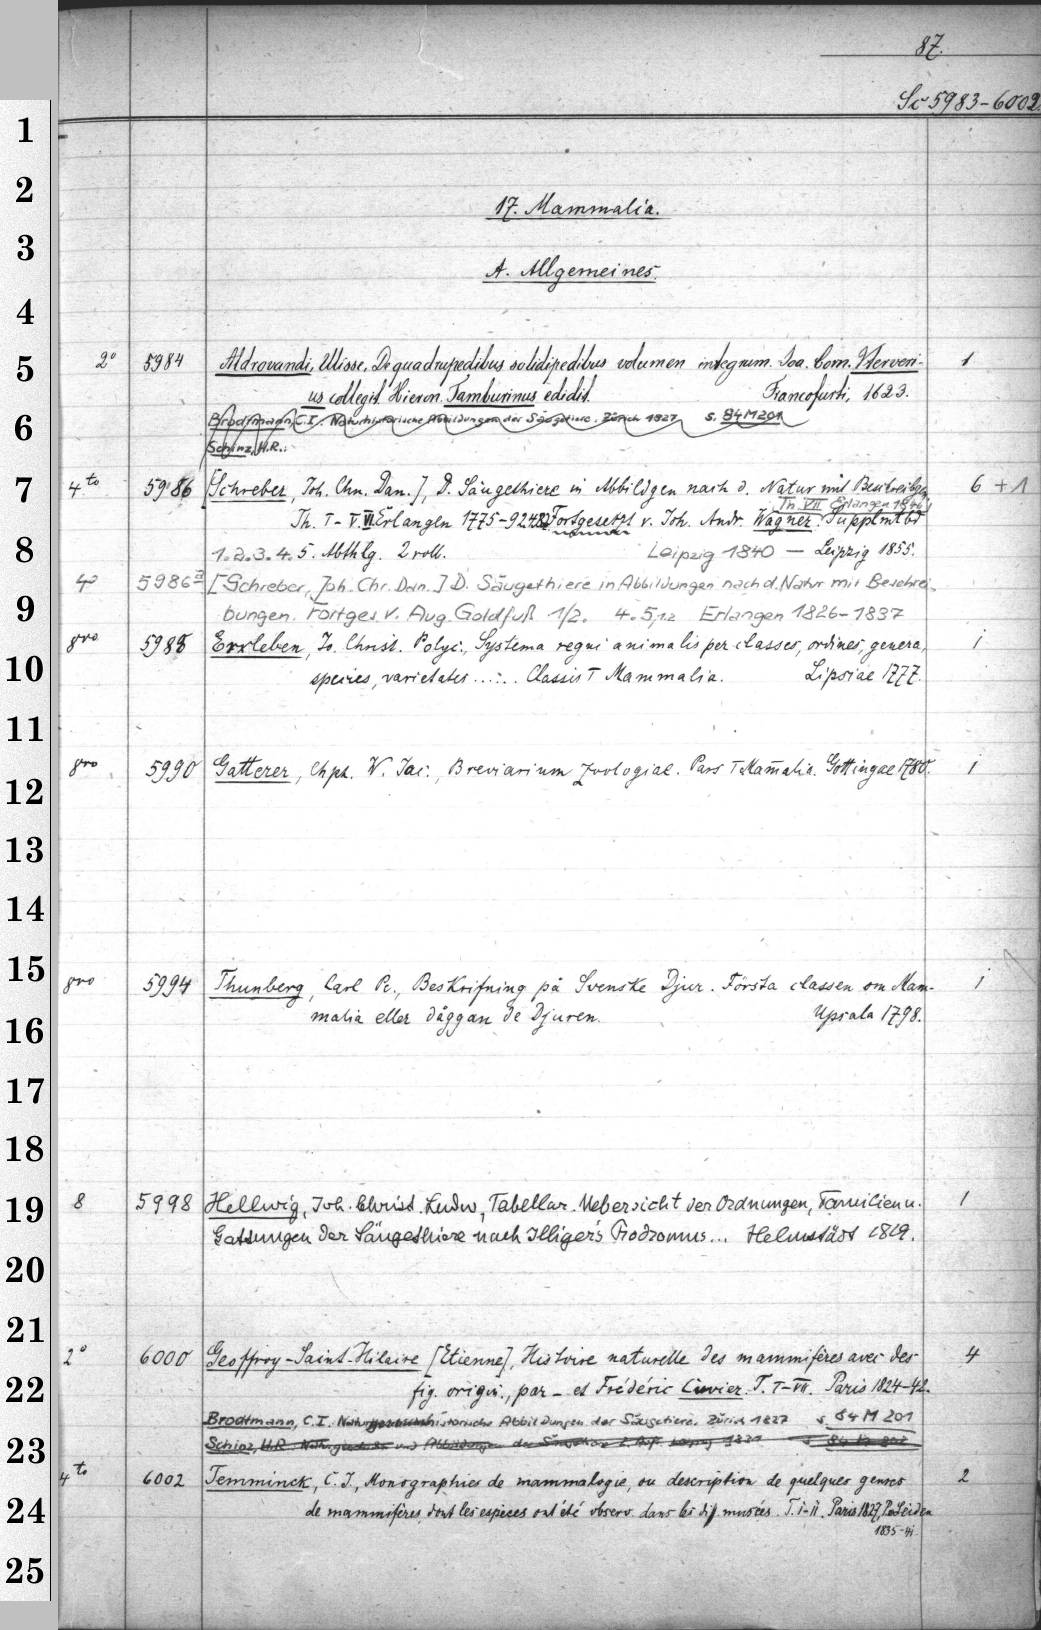 87.
Sc 5983-6002.
1
2
17. Mammalia.
3
A. Allgemeines.
4
5
2° 5984 Aldrovandi, Ulisse, De quadrupedibus solidipedibus volumen integrum. Joa. Corn. Uterveri- 1
us collegit. Hieron. Tamburinus edidit. Francofurti, 1623.
6
Brodtmann, C.I. Naturhistorische Abbildungen der Säugetiere. Zürich 1827 s. 84 M 201
Schinz, H.R.:
7
4to 5986 [Schreber, Joh. Chn. Dan.], D. Säugethiere in Abbildgen nach d. Natur mit Beschreibgn 6 + 1
Th. VII Erlangen 1846
Th. I-V. VI Erlangen 1775-92 Fortgesetzt v. Joh. Andr. Wagner. Supplmtbd
8
1.2.3.4.5. Abthlg. 2 voll. Leipzig 1840 — Leipzig 1855.
4° 5986 a [Schreber, Joh. Chr. Dan.] D. Säugethiere in Abbildungen nach d. Natur mit Beschrei-
9
bungen. Fortges. v. Aug. Goldfuß 1/2. 4. 5,1.2 Erlangen 1826-1837
8vo 5988 Erxleben, Jo. Christ. Polyc., Systema regni animalis per classes, ordines, genera, 1
10
species, varietates ..... Classis I Mammalia. Lipsiae 1777.
11
8vo 5990 Gatterer, Chph. W. Jac., Breviarium zoologiae. Pars I Mam̄alia. Gottingae 1780. 1
12
13
14
15
8vo 5994 Thunberg, Carl Pe., Beskrifning på Svenske Djur. Första classen om Mam- 1
16
malia eller däggande Djuren. Upsala 1798.
17
18
19
8 5998 Hellwig, Joh. Christ. Ludw., Tabellar. Uebersicht der Ordnungen, Familien u. 1
Gattungen der Säugethiere nach Illiger's Prodromus... Helmstädt 1819.
20
21
2° 6000 Geoffroy-Saint-Hilaire [Etienne], Histoire naturelle des mammifères avec des 4
22
fig. origin., par - et Frédéric Cuvier. T. I-VII. Paris 1824-42.
Brodtmann, C.I. Naturhistorische Abbildungen der Säugetiere. Zürich 1827 s. 84 M 201
23
Schinz, H.R. Naturgeschichte und Abbildungen der Säugetiere 2. Aufl.
4to 6002 Temminck, C. J., Monographies de mammalogie, ou description de quelques genres 2
24
de mammifères, dont les espèces ont été observ. dans les dif. musées. T. I-II. Paris 1827, P. u. Leiden
1835-41.
25